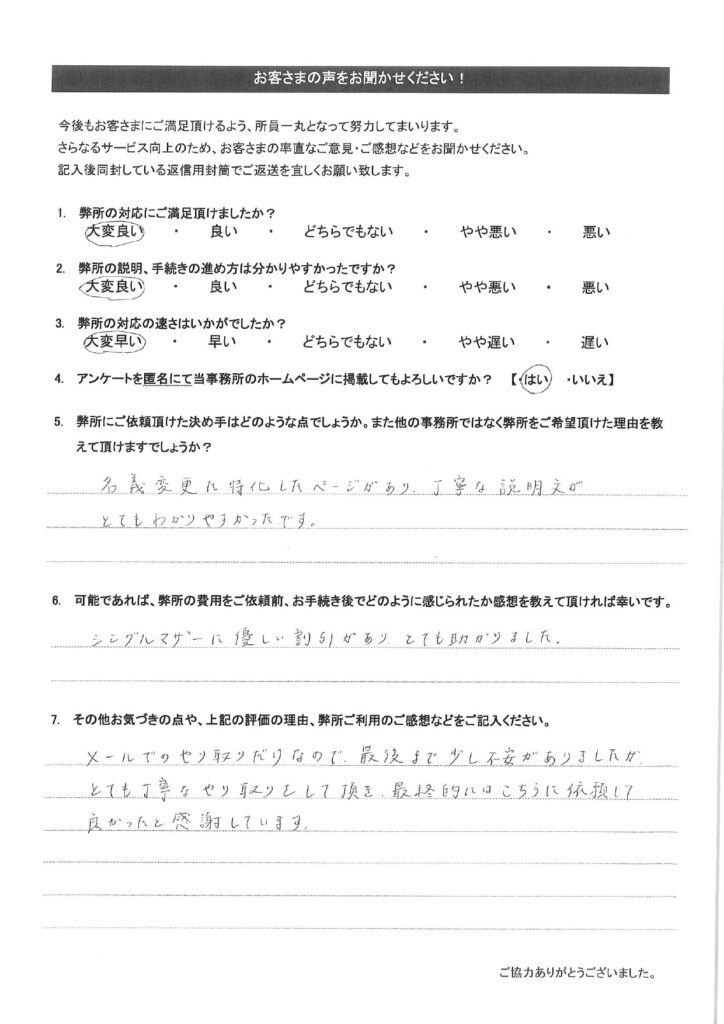 お客さまの声をお聞かせください！
今後もお客さまにご満足頂けるよう、所員一丸となって努力してまいります。
さらなるサービス向上のため、お客さまの率直なご意見・ご感想などをお聞かせください。
記入後同封している返信用封筒でご返送を宜しくお願い致します。
1. 弊所の対応にご満足頂けましたか？
大変良い ・ 良い ・ どちらでもない ・ やや悪い ・ 悪い
2. 弊所の説明、手続きの進め方は分かりやすかったですか？
大変良い ・ 良い ・ どちらでもない ・ やや悪い ・ 悪い
3. 弊所の対応の速さはいかがでしたか？
大変早い ・ 早い ・ どちらでもない ・ やや遅い ・ 遅い
4. アンケートを匿名にて当事務所のホームページに掲載してもよろしいですか？ 【・はい ・いいえ】
5. 弊所にご依頼頂けた決め手はどのような点でしょうか。また他の事務所ではなく弊所をご希望頂けた理由を教
えて頂けますでしょうか？
名義変更に特化したページがあり、丁寧な説明文が
とてもわかりやすかったです。
6. 可能であれば、弊所の費用をご依頼前、お手続き後でどのように感じられたか感想を教えて頂ければ幸いです。
シングルマザーに優しい割引があり、とても助かりました。
7. その他お気づきの点や、上記の評価の理由、弊所ご利用のご感想などをご記入ください。
メールでのやり取りだけなので、最後まで少し不安がありましたが、
とても丁寧なやり取りをして頂き、最終的にはこちらに依頼して
良かったと感謝しています。
ご協力ありがとうございました。